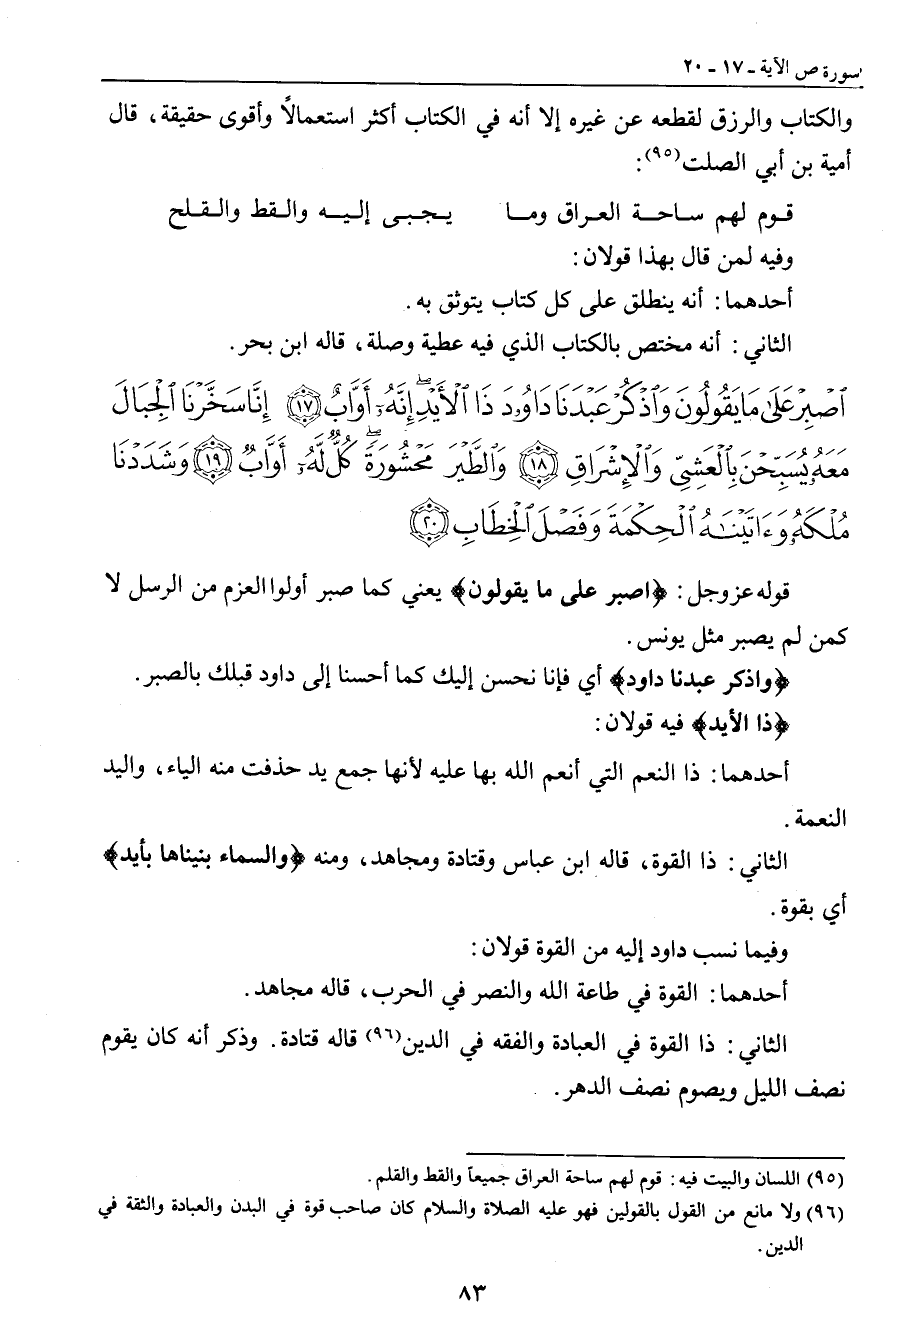 سورة ص الآية ـ ١٧ ـ ٢٠
والكتاب والرزق لقطعه عن غيره إلا أنه في الكتاب أكثر استعمالاً وأقوى حقيقة، قال
أمية بن أبي الصلت(٩٥):
قوم لهم ساحة العراق وما يجبى إليه والقط والقلح
وفيه لمن قال بهذا قولان:
أحدهما: أنه ينطلق على كل كتاب يتوثق به.
الثاني: أنه مختص بالكتاب الذي فيه عطية وصلة، قاله ابن بحر.
ٱصۡبِرۡ عَلَىٰ مَا يَقُولُونَ وَٱذۡكُرۡ عَبۡدَنَا دَاوُۥدَ ذَا ٱلۡأَيۡدِۖ إِنَّهُۥٓ أَوَّابٌ ١٧ إِنَّا سَخَّرۡنَا ٱلۡجِبَالَ
مَعَهُۥ يُسَبِّحۡنَ بِٱلۡعَشِيِّ وَٱلۡإِشۡرَاقِ ١٨ وَٱلطَّيۡرَ مَحۡشُورَةٗۖ كُلّٞ لَّهُۥٓ أَوَّابٞ ١٩ وَشَدَدۡنَا
مُلۡكَهُۥ وَءَاتَيۡنَٰهُ ٱلۡحِكۡمَةَ وَفَصۡلَ ٱلۡخِطَابِ ٢٠
قوله عز وجل: ﴿اصبر على ما يقولون﴾ يعني كما صبر أولوا العزم من الرسل لا
كمن لم يصبر مثل يونس.
﴿واذكر عبدنا داود﴾ أي فإنا نحسن إليك كما أحسنا إلى داود قبلك بالصبر.
﴿ذا الأيد﴾ فيه قولان:
أحدهما: ذا النعم التي أنعم الله بها عليه لأنها جمع يد حذفت منه الياء، واليد
النعمة.
الثاني: ذا القوة، قاله ابن عباس وقتادة ومجاهد، ومنه ﴿والسماء بنيناها بأيد﴾
أي بقوة.
وفيما نسب داود إليه من القوة قولان:
أحدهما: القوة في طاعة الله والنصر في الحرب، قاله مجاهد.
الثاني: ذا القوة في العبادة والفقه في الدين(٩٦) قاله قتادة. وذكر أنه كان يقوم
نصف الليل ويصوم نصف الدهر.
(٩٥) اللسان والبيت فيه: قوم لهم ساحة العراق جميعاً والقط والقلم.
(٩٦) ولا مانع من القول بالقولين فهو عليه الصلاة والسلام كان صاحب قوة في البدن والعبادة والثقة في
الدين.
٨٣